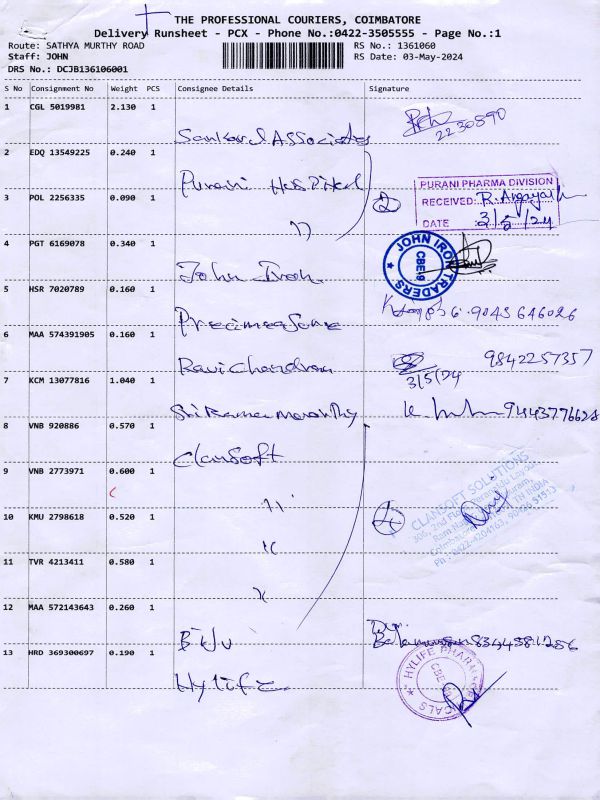 THE PROFESSIONAL COURIERS, COIMBATORE
Delivery Runsheet - PCX - Phone No.:0422-3505555 - Page No.:1
Route: SATHYA MURTHY ROAD
Staff: JOHN
DRS No.: DCJB136106001
RS No.: 1361060
RS Date: 03-May-2024
S No Consignment No Weight PCS Consignee Details Signature
1 CGL 5019981 2.130 1
Sankar & Associates
2230590
2 EDQ 13549225 0.240 1
Purani Hospital
3 POL 2256335 0.090 1
"
2
PURANI PHARMA DIVISION
RECEIVED:
DATE 3/5/24
4 PGT 6169078 0.340 1
John Iron
JOHN IRON TRADERS
CBE-19
5 HSR 7020789 0.160 1
Precimeasure
9043646026
6 MAA 574391905 0.160 1
Ravi Chandran
9842257357
3/5/24
7 KCM 13077816 1.040 1
Sri Rama moorthy
9443776628
8 VNB 920886 0.570 1
Clansoft
9 VNB 2773971 0.600 1
"
10 KMU 2798618 0.520 1
"
4
CLANSOFT SOLUTIONS
11 TVR 4213411 0.580 1
"
12 MAA 572143643 0.260 1
Biju
8344581256
13 HRD 369300697 0.190 1
Hylife
HYLIFE PHARMACEUTICALS
CBE